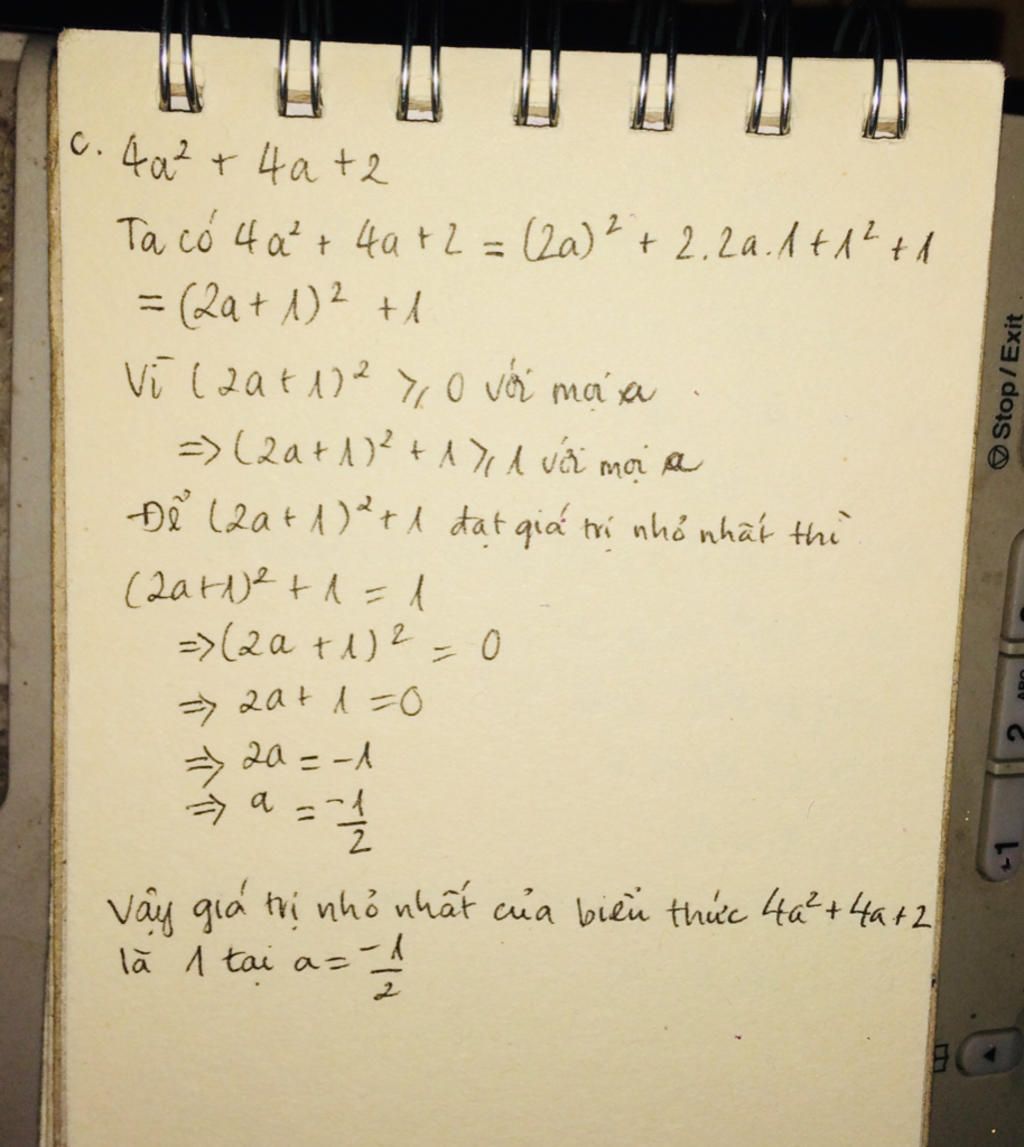 c. 4a² + 4a + 2
Ta có 4a² + 4a + 2 = (2a)² + 2.2a.1 + 1² + 1
= (2a + 1)² + 1
Vì (2a + 1)² ⩾ 0 với mọi a
=> (2a + 1)² + 1 ⩾ 1 với mọi a
Để (2a + 1)² + 1 đạt giá trị nhỏ nhất thì
(2a+1)² + 1 = 1
=> (2a + 1)² = 0
=> 2a + 1 = 0
=> 2a = -1
=> a = -1/2
Vậy giá trị nhỏ nhất của biểu thức 4a² + 4a + 2
là 1 tại a = -1/2
Stop/Exit
ABC
2
1